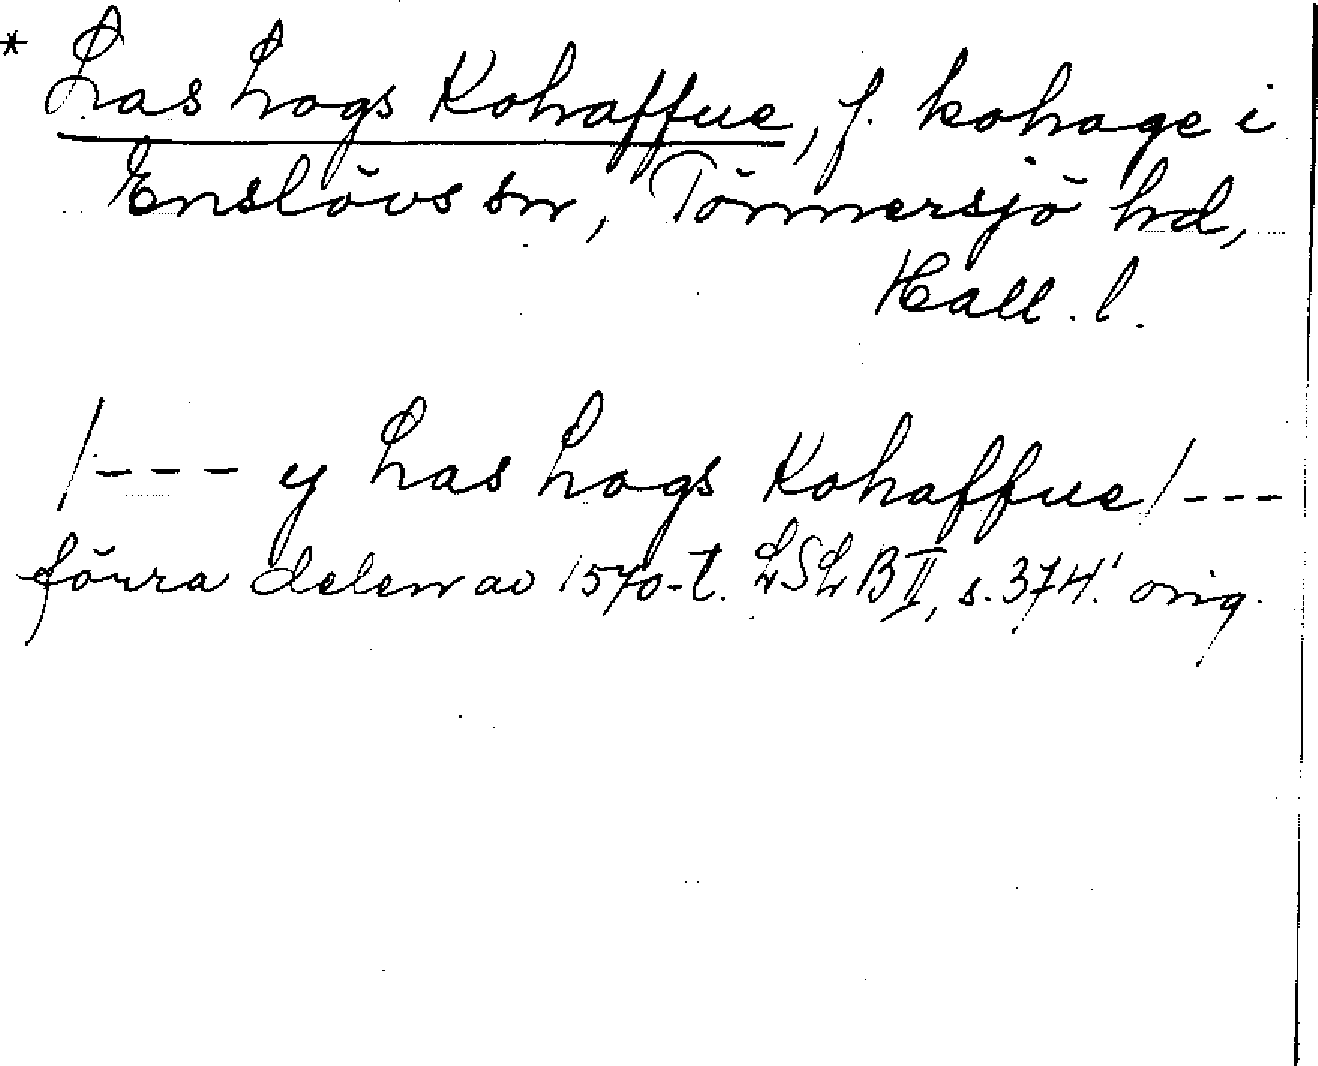 * Las Logs Kohaffue, f. kohage i
Enslövs sn, Tönnersjö hd,
Hall. l.
/--- y Las Logs Kohaffue/---
förra delen av 1570-t. LSLB II, s. 374. orig.